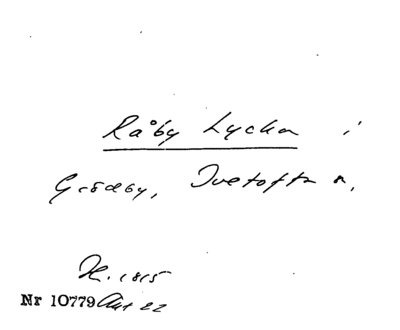 Råby Lycka i
Grödby, Ivetofta n,
H. 1815
Nr 10779 Aug 22